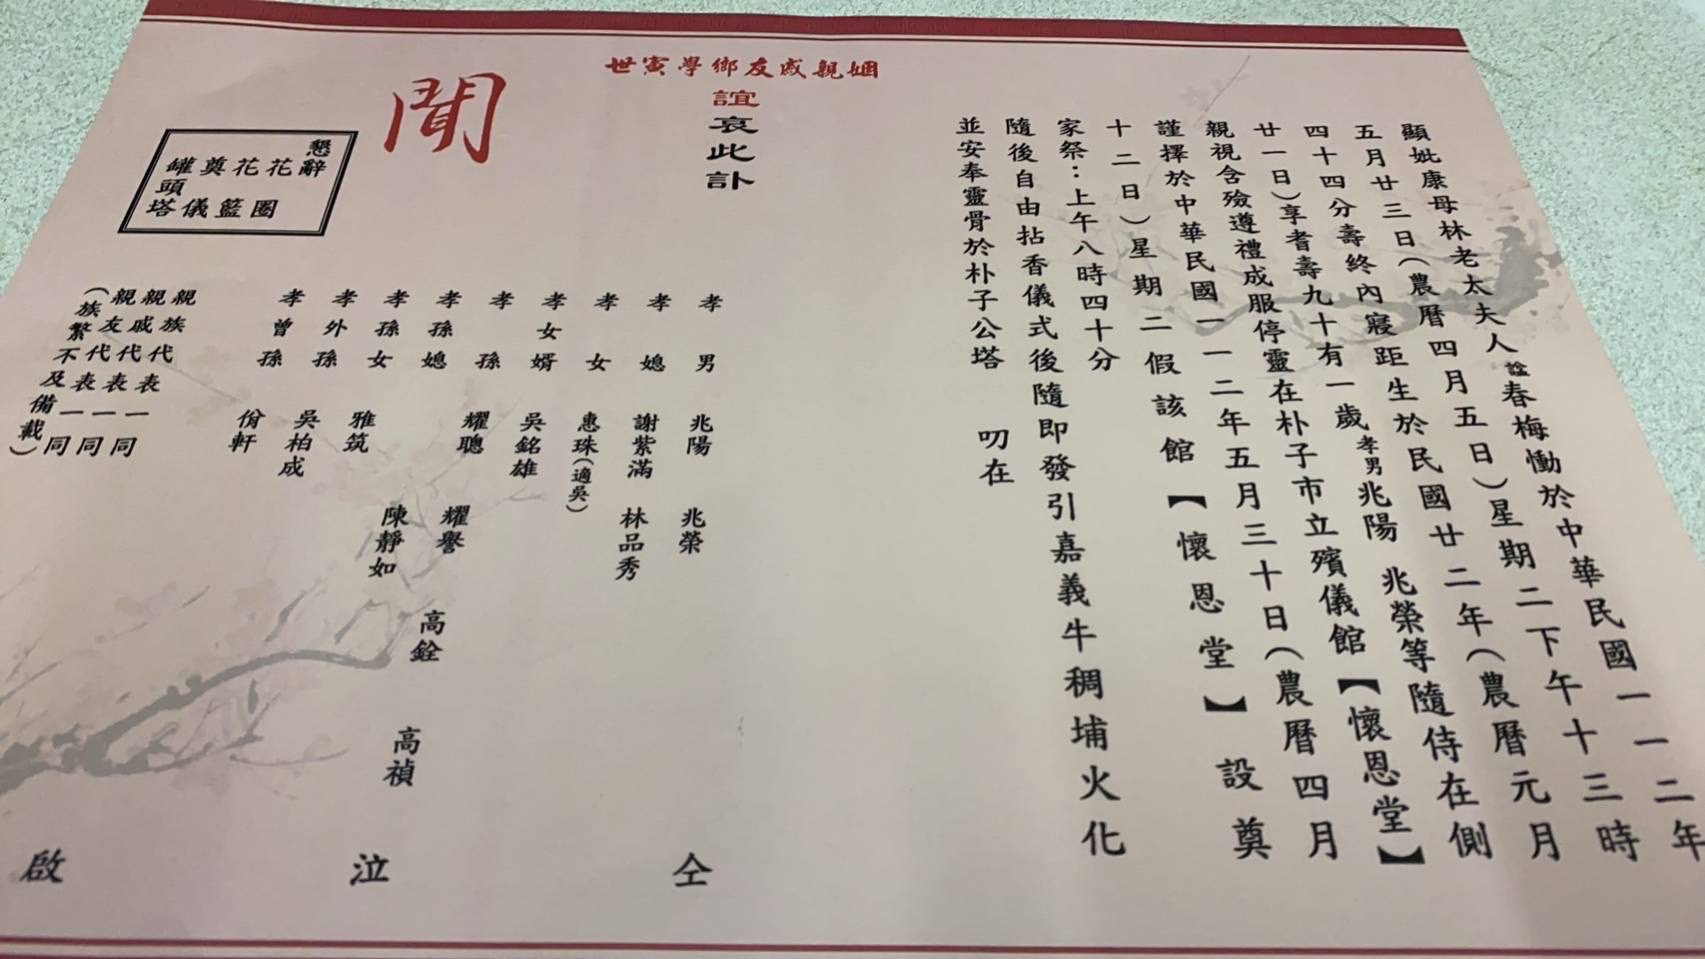 顯妣康母林老太夫人諡春梅慟於中華民國一一二年
五月廿三日(農曆四月五日)星期二下午十三時
四十四分壽終內寢距生於民國廿二年(農曆元月
廿一日)享耆壽九十有一歲孝男兆陽 兆榮等隨侍在側
親視含殮遵禮成服停靈在朴子市立殯儀館【懷恩堂】
謹擇於中華民國一一二年五月三十日(農曆四月
十二日)星期二假該館【懷恩堂】設奠
家祭：上午八時四十分
隨後自由拈香儀式後隨即發引嘉義牛稠埔火化
並安奉靈骨於朴子公塔 叨在
姻親戚友鄉學寅世
誼哀此訃
聞
懇辭
花圈
花籃
奠儀
罐頭塔
孝男 兆陽 兆榮
孝媳 謝紫滿 林品秀
孝女 惠珠(適吳)
孝女婿 吳銘雄
孝孫 耀聰 耀譽 高銓 高禎
孝孫媳 陳靜如
孝孫女 雅筑
孝外孫 吳柏成
孝曾孫 佾軒
親族代表一同
親戚代表一同
親友代表一同
(族繁不及備載)
仝 泣 啟